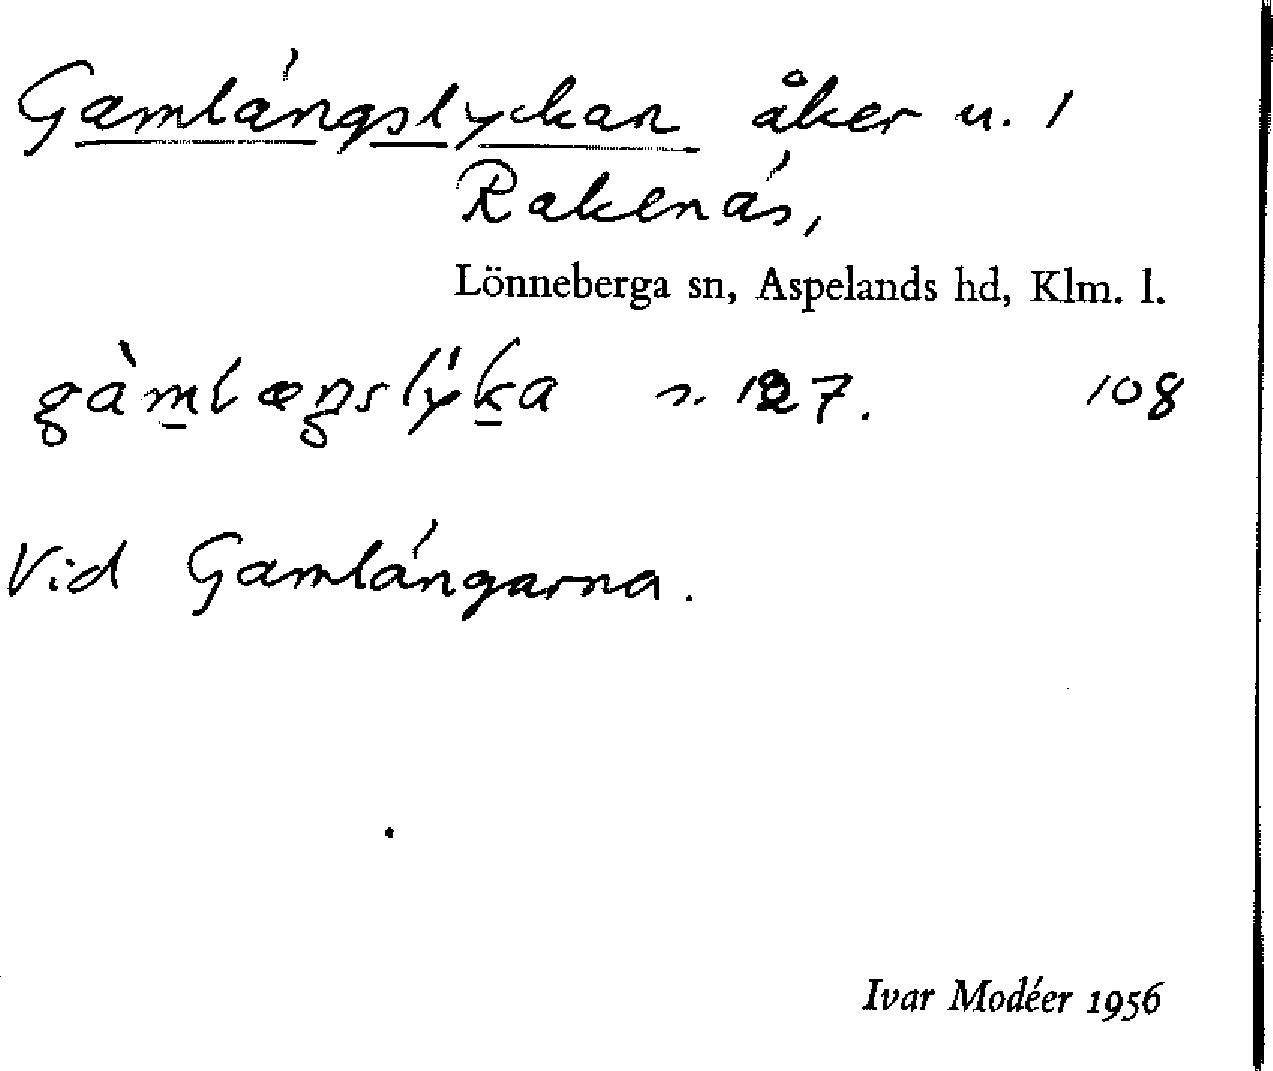 Gamlängslyckan åker u. 1
Rakenäs,
Lönneberga sn, Aspelands hd, Klm. l.
gàmlæŋslyka s. 127. 108
Vid Gamlängarna.
Ivar Modéer 1956